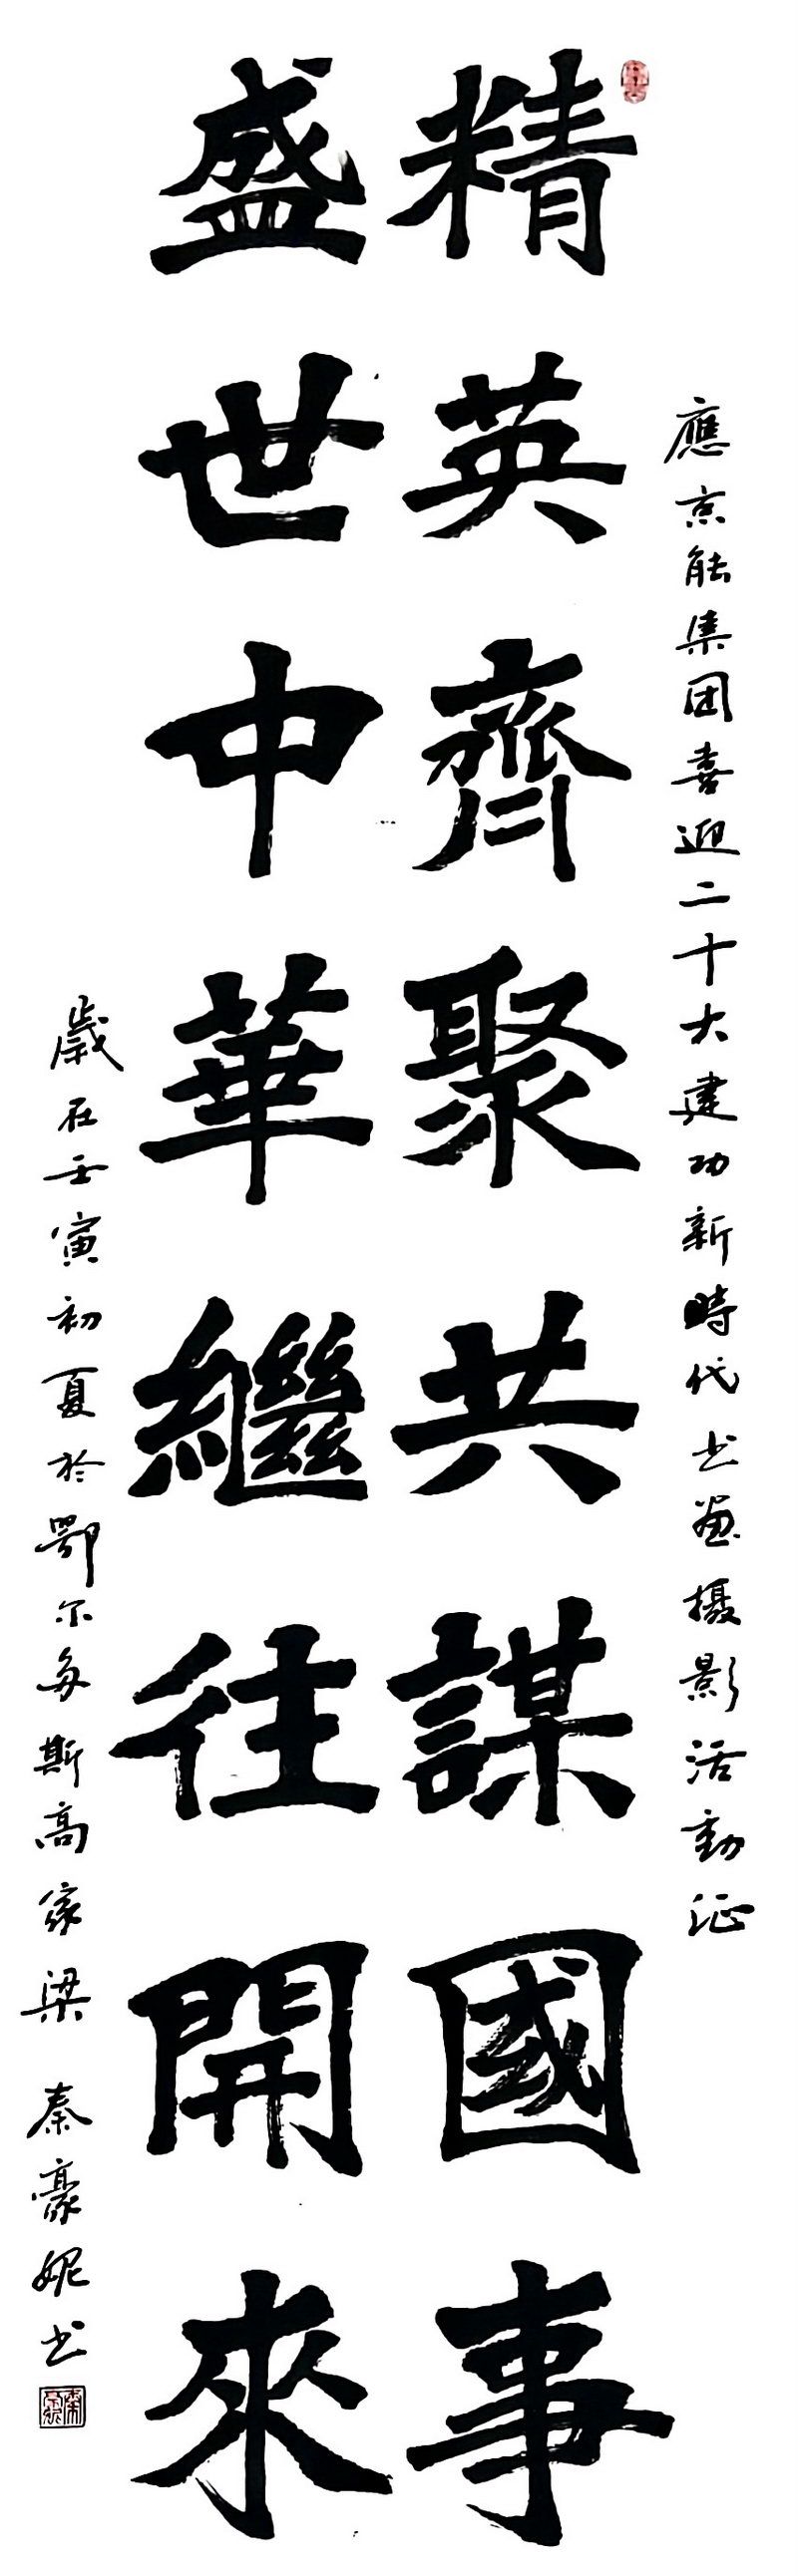 應京能集团喜迎二十大建功新時代书画摄影活動征
精英齊聚共謀國事
盛世中華繼往開來
歲在壬寅初夏於鄂尔多斯高家梁 秦豪妮书